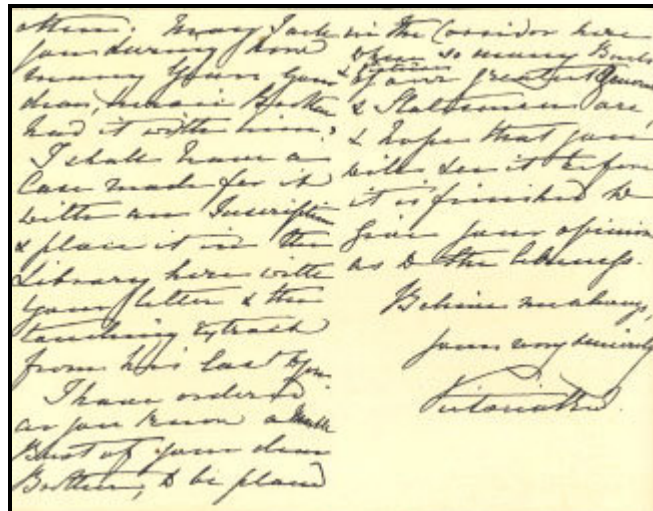 often. May I ask
you during how
many years your
dear, heroic Brother
had it with him?
I shall have a
Case made for it
with an Inscription
& place it in the
Library here with
your letter & the
touching extract
from his last to you.
I have ordered
as you know a Marble
Bust of your dear
Brother, to be placed
in the Corridor here
where so many Busts
& pictures
of our greatest Generals
& Statesmen are,
& hope that you
will see it before
it is finished to
give your opinion
as to the likeness.
Believe me always,
yours very sincerely
Victoria R I.